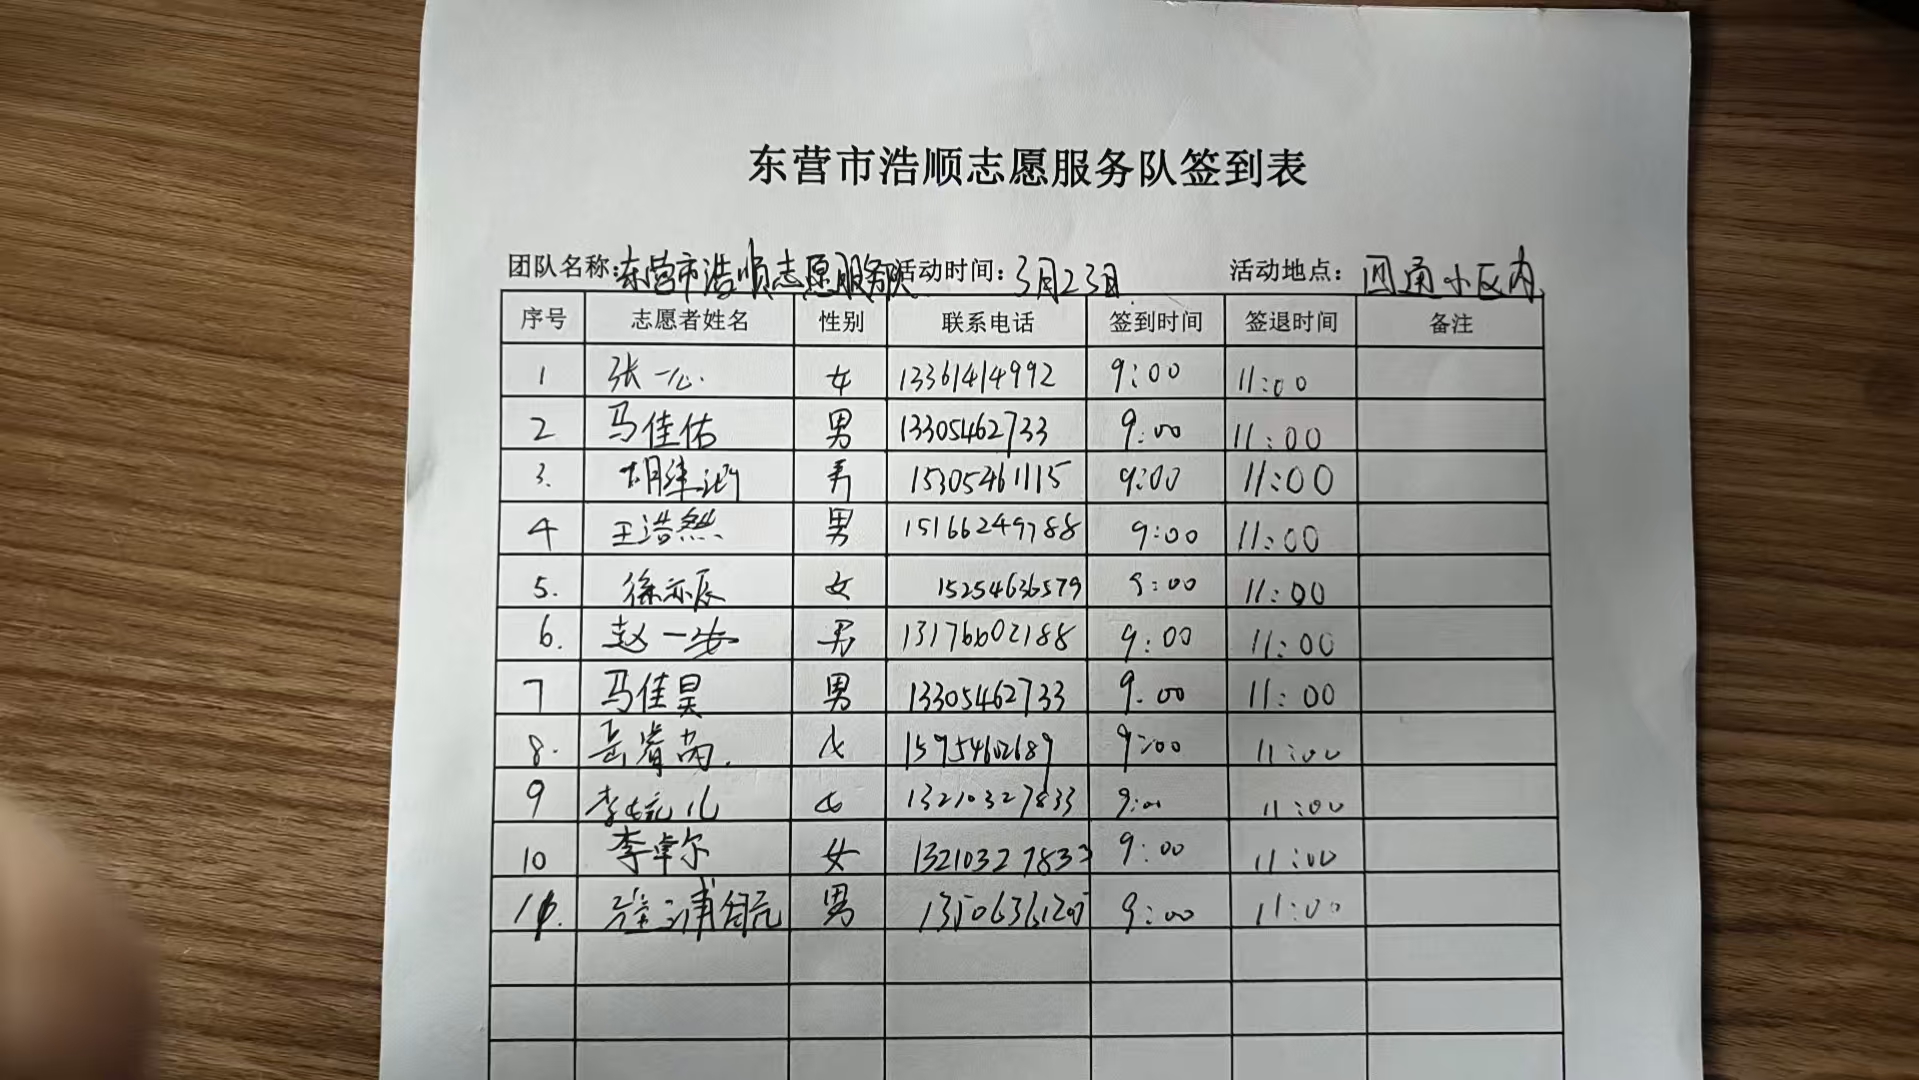 东营市浩顺志愿服务队签到表
团队名称:东营市浩顺志愿服务队 活动时间:3月23日 活动地点: 四通小区内
序号 志愿者姓名 性别 联系电话 签到时间 签退时间 备注
1 张一心 女 13361414992 9:00 11:00
2 马佳佑 男 13305462733 9:00 11:00
3. 胡 男 15305461115 9:00 11:00
4 王浩然 男 15166249788 9:00 11:00
5. 徐亦辰 女 15254636579 9:00 11:00
6. 赵一安 男 13176602188 9:00 11:00
7 马佳昊 男 13305462733 9:00 11:00
8. 岳睿芮. 女 15954602689 9:00 11:00
9 李 儿 女 13210327833 9:00 11:00
10 李卓尔 女 13210327833 9:00 11:00
11. 男 9:00 11:00